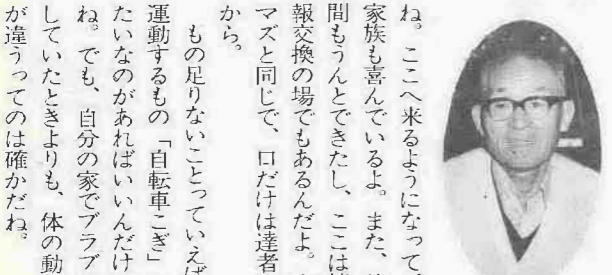 ね。ここへ来るようになって、
家族も喜んでいるよ。また、
間もうんとできたし、ここは
報交換の場でもあるんだよ。
マズと同じで、口だけは達者
から。
もの足りないことっていえば
運動するもの「自転車こぎ」
たいなのがあればいいんだけ
ね。でも、自分の家でブラブ
していたときよりも、体の動
が違うってのは確かだね。